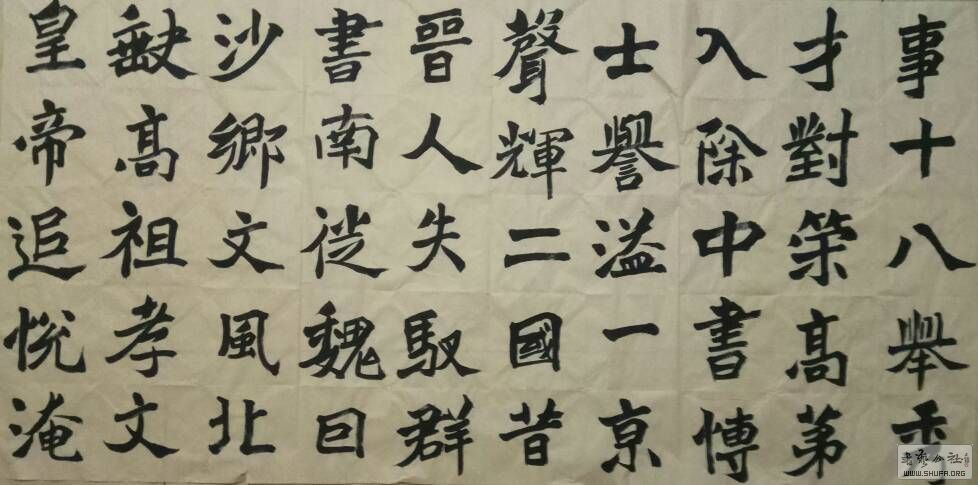 事十八舉秀
才對筞高第
入除中書博
士譽溢一京
聲輝二國昔
晉人失馭群
書南徙魏囙
沙鄉文風北
缺高祖孝文
皇帝追悅淹
书艺公社
WWW.SHUFA.ORG